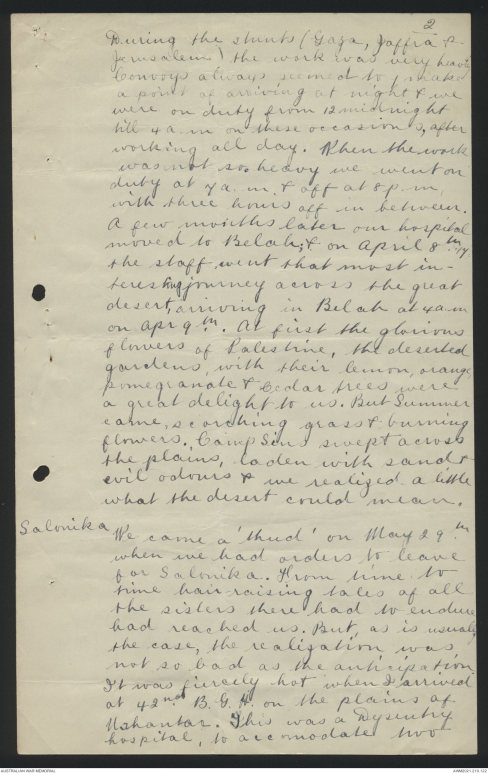 2
During the stunts (Gaza, Jaffra &
Jerusalem) the work was very heavy
Convoys always seemed to make
a point of arriving at night & we
were on duty from 12 midnight
till 4 a.m on these occasions, after
working all day. When the work
was not so heavy we went on
duty at 7 a.m. & off at 8 p.m.
with three hours off in between.
A few months later our hospital
moved to Belah; & on April 8th
the staff went that most in-
teresting journey across the great
desert, arriving in Belah at 4 a.m
on Apr 9th. At first the glorious
flowers of Palestine, the deserted
gardens, with their lemon, orange
pomegranate & Cedar trees were
a great delight to us. But Summer
came, scorching grass & burning
flowers. CampSins swept across
the plains, laden with sand &
evil odours & we realized a little
what the desert could mean.
Salonika
We came a 'thud' on May 29th
when we had orders to leave
for Salonika. From time to
time hair-raising tales of all
the sisters there had to endure
had reached us. But, as is usually
the case, the realization was
not so bad as the anticipation
It was fiercely hot when I arrived
at 42nd B.G.H. on the plains of
This was a Dysentry
hospital, to accomodate two
AUSTRALIAN WAR MEMORIAL